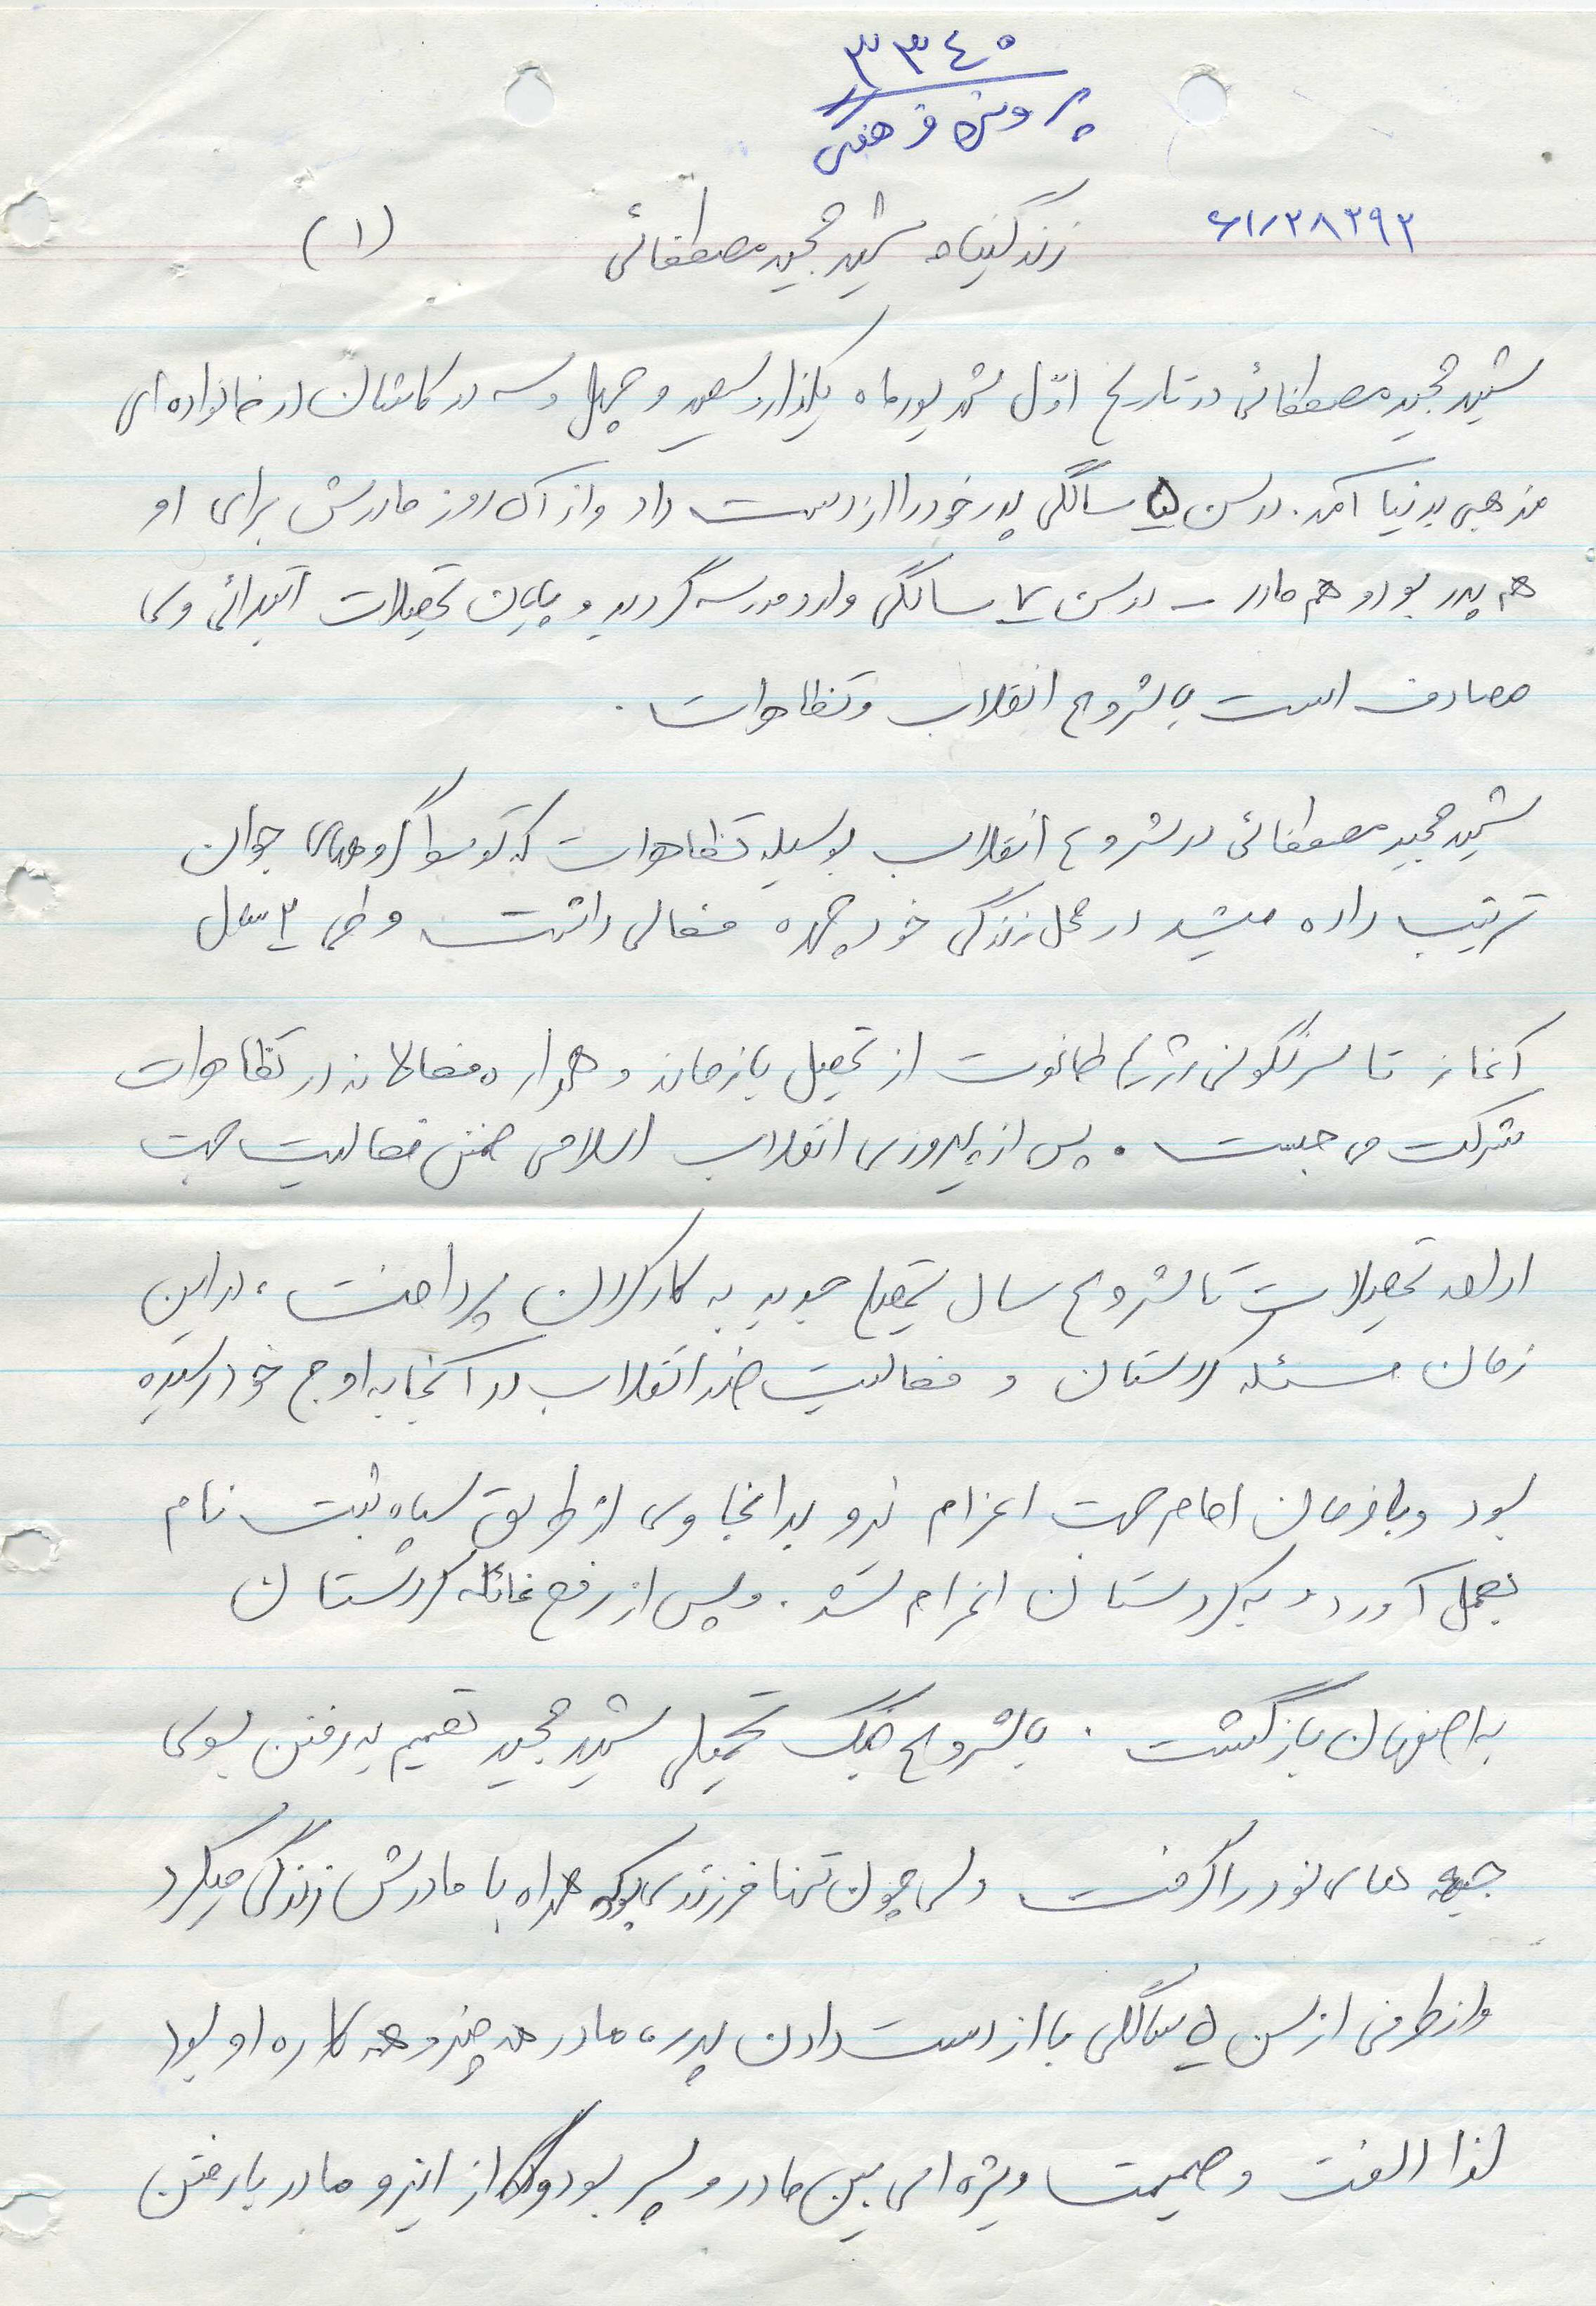 ۳۳۴۵
پرونده فرهنگی
۶۱/۲۸۲۹۲
زندگینامه شهید مجید مصطفائی (۱)
شهید مجید مصطفائی در تاریخ اوّل شهریورماه یکهزار و سیصد و چهل و سه در کاشان در خانواده ای
مذهبی بدنیا آمد. در سن ۵ سالگی پدر خود را از دست داد و از آن روز مادرش برای او
هم پدر بود و هم مادر – در سن ۷ سالگی وارد مدرسه گردید و پایان تحصیلات ابتدائی وی
مصادف است با شروع انقلاب و تظاهرات.
شهید مجید مصطفائی در شروع انقلاب بوسیله تظاهرات که توسط گروههای جوان
ترتیب داده میشد در محل زندگی خود چهره فعالی داشت و طی ۲ سال
آغاز تا سرنگونی رژیم طاغوت از تحصیل بازماند و همواره فعالانه در تظاهرات
شرکت می جست. پس از پیروزی انقلاب اسلامی ضمن فعالیت جهت
ادامه تحصیلات تا شروع سال تحصیلی جدید به کار کردن پرداخت، در این
زمان مسئله کردستان و فعالیت ضد انقلاب در آنجا به اوج خود رسیده
بود و با فرمان امام جهت اعزام نیرو بدانجا وی از طریق سپاه ثبت نام
بعمل آورد و به کردستان اعزام شد. و پس از رفع غائله کردستان
به اصفهان بازگشت. با شروع جنگ تحمیلی شهید مجید تصمیم به رفتن بسوی
جبهه های نور را گرفت ولی چون تنها فرزندی بود که همراه با مادرش زندگی میکرد
و از طرفی از سن ۵ سالگی با از دست دادن پدر، مادر همه چیز و همه کاره او بود
لذا الفت و صمیمت ویژه ای بین مادر و پسر بود و از اینرو مادر با رفتن